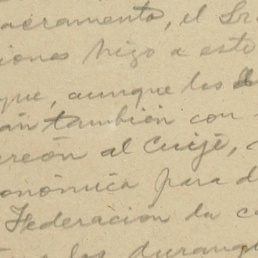 acramento, el Sr.
iones hizo a este
que, aunque los
án también con
reón al Cuije,
onómica para d
Federacion da c
los durang